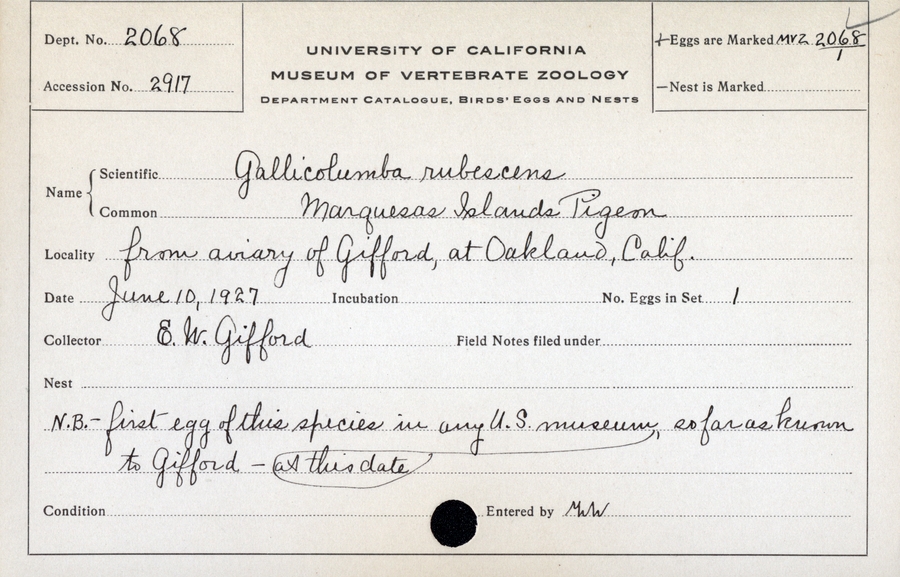 Dept. No. 2068
Accession No. 2917
UNIVERSITY OF CALIFORNIA
MUSEUM OF VERTEBRATE ZOOLOGY
DEPARTMENT CATALOGUE, BIRDS' EGGS AND NESTS
+Eggs are Marked MVZ 2068/1
—Nest is Marked
Name { Scientific Gallicolumba rubescens
Common Marquesas Islands Pigeon
Locality from aviary of Gifford, at Oakland, Calif.
Date June 10, 1927 Incubation No. Eggs in Set 1
Collector E. W. Gifford Field Notes filed under
Nest
N.B.- first egg of this species in any U.S. museum, so far as known
to Gifford - at this date
Condition Entered by